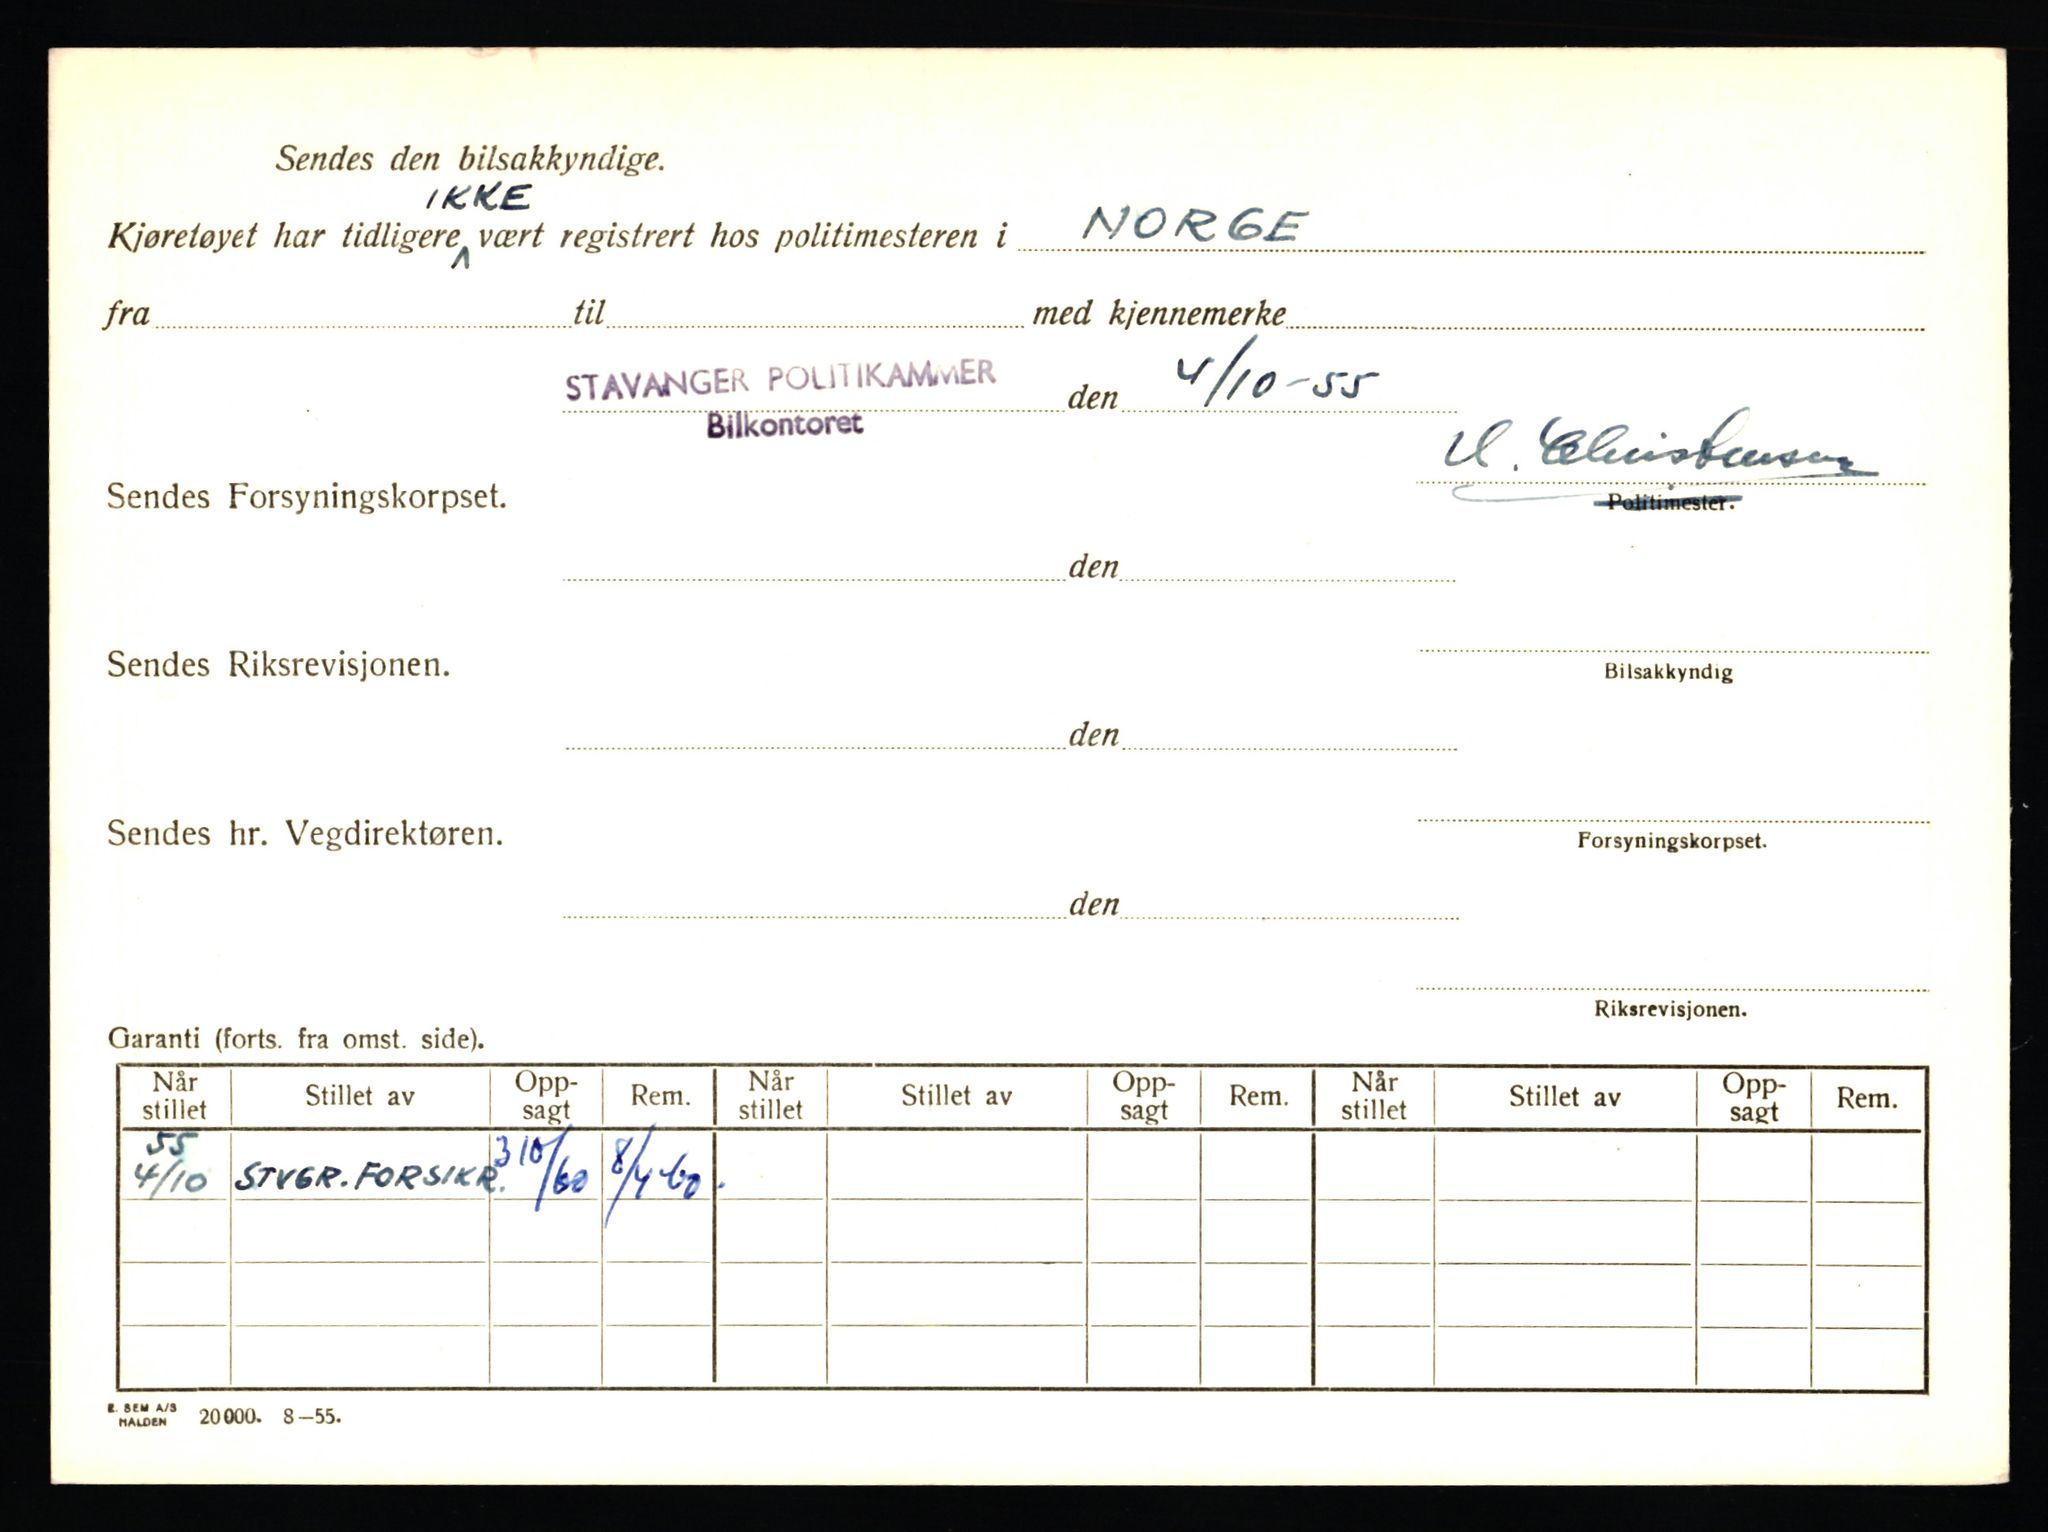 Sendes den bilsakkyndige.
IKKE
Kjøretøyet har tidligere ^ vært registrert hos politimesteren i NORGE
fra til med kjennemerke
STAVANGER POLITIKAMMER den 4/10-55
Bilkontoret
Christensen
Sendes Forsyningskorpset.
Politimester.
den
Sendes Riksrevisjonen.
Bilsakkyndig
den
Sendes hr. Vegdirektøren.
Forsyningskorpset.
den
Riksrevisjonen.
Garanti (forts. fra omst. side).
Når stillet Stillet av Opp-sagt Rem. Når stillet Stillet av Opp-sagt Rem. Når stillet Stillet av Opp-sagt Rem.
55
4/10 STVGR. FORSIKR. 3 10/60 8/4-60.
E. SEM A/S
HALDEN 20000. 8-55.